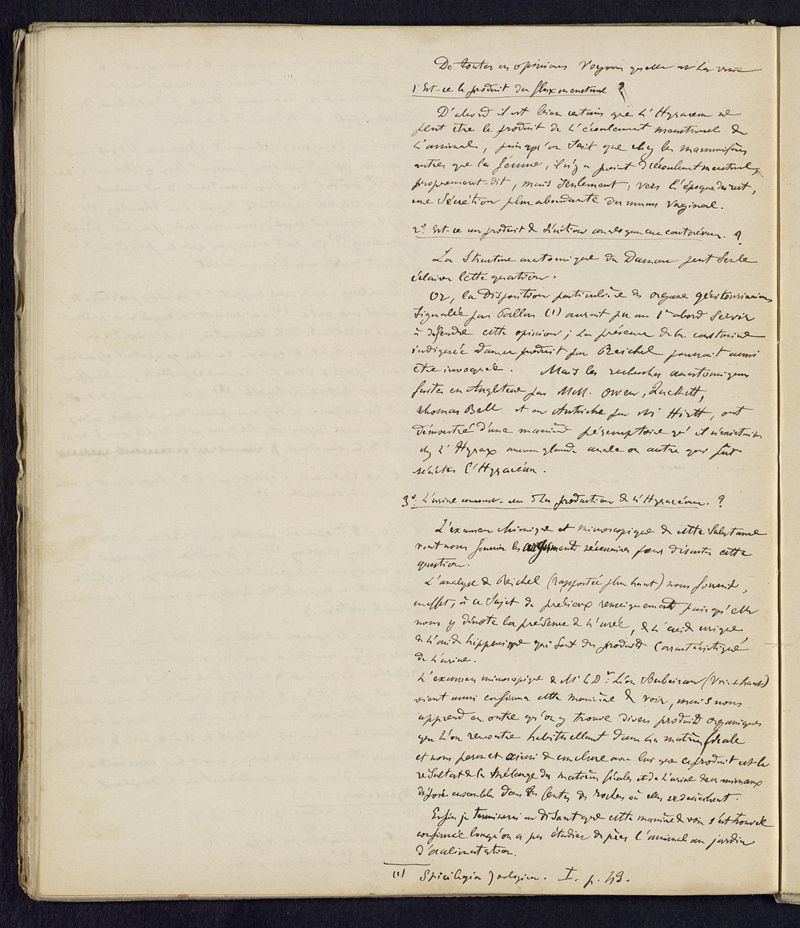 De toutes ces opinions voyons quelle est la vraie
1° Est-ce le produit du flux menstruel ?
D'abord il est bien certain que l'Hyraceum ne
peut être le produit de l'écoulement menstruel de
l'animal, puisqu'on sait que chez les mammifères
autres que la femme, il n'y a point d'écoulement menstruel
proprement dit, mais seulement, vers l'époque du rut,
une sécrétion plus abondante du mucus vaginal.
2° Est-ce un produit de sécrétion analogue au castoréum. ?
La structure anatomique du Daman peut seule
éclairer cette question.
Or, la disposition particulière des organes génitourinaires
signalée par Pallas (1) aurait pu au 1er abord servir
à défendre cette opinion ; la présence de la castorine
indiquée dans ce produit par Reichel pourrait aussi
être invoquée. Mais les recherches anatomiques
faites en Angleterre par MM. Owen,
Thomas Bell et en Autriche par Mr Hirtt, ont
démontré d'une manière péremptoire qu'il n'existait
chez l'Hyrax aucune glande anale ou autre qui put
sécréter l'Hyraceum.
3° L'urine concourt-elle à la production de l'Hyraceum. ?
L'examen chimique et microscopique de cette substance
vont nous fournir les arguments nécessaires pour discuter cette
question.
L'analyse de Reichel (rapportée plus haut) nous fournit,
en effet, à ce sujet de précieux renseignements puisqu'elle
nous y dénote la présence de l'urée, de l'acide urique,
de l'acide hippurique qui sont des produits caractéristiques
de l'urine.
L'examen microscopique de Mr le Dr Léon (Voir + haut)
vient aussi confirmer cette manière de voir, mais nous
apprend en outre qu'on y trouve divers produits organiques
que l'on rencontre habituellement dans la matière fécale
et nous permet ainsi de conclure avec lui que ce produit est le
résultat de la mélange des matières fécales et de l'urine de ces animaux
déposé ensemble dans les fentes des roches où elles se dessèchent.
Enfin je terminerai en disant que cette manière de voir s'est trouvée
confirmée lorsqu'on a pu étudier de près l'animal au jardin
d'acclimatation.
(1) Spicilegia Zoologica. I. p. 49.